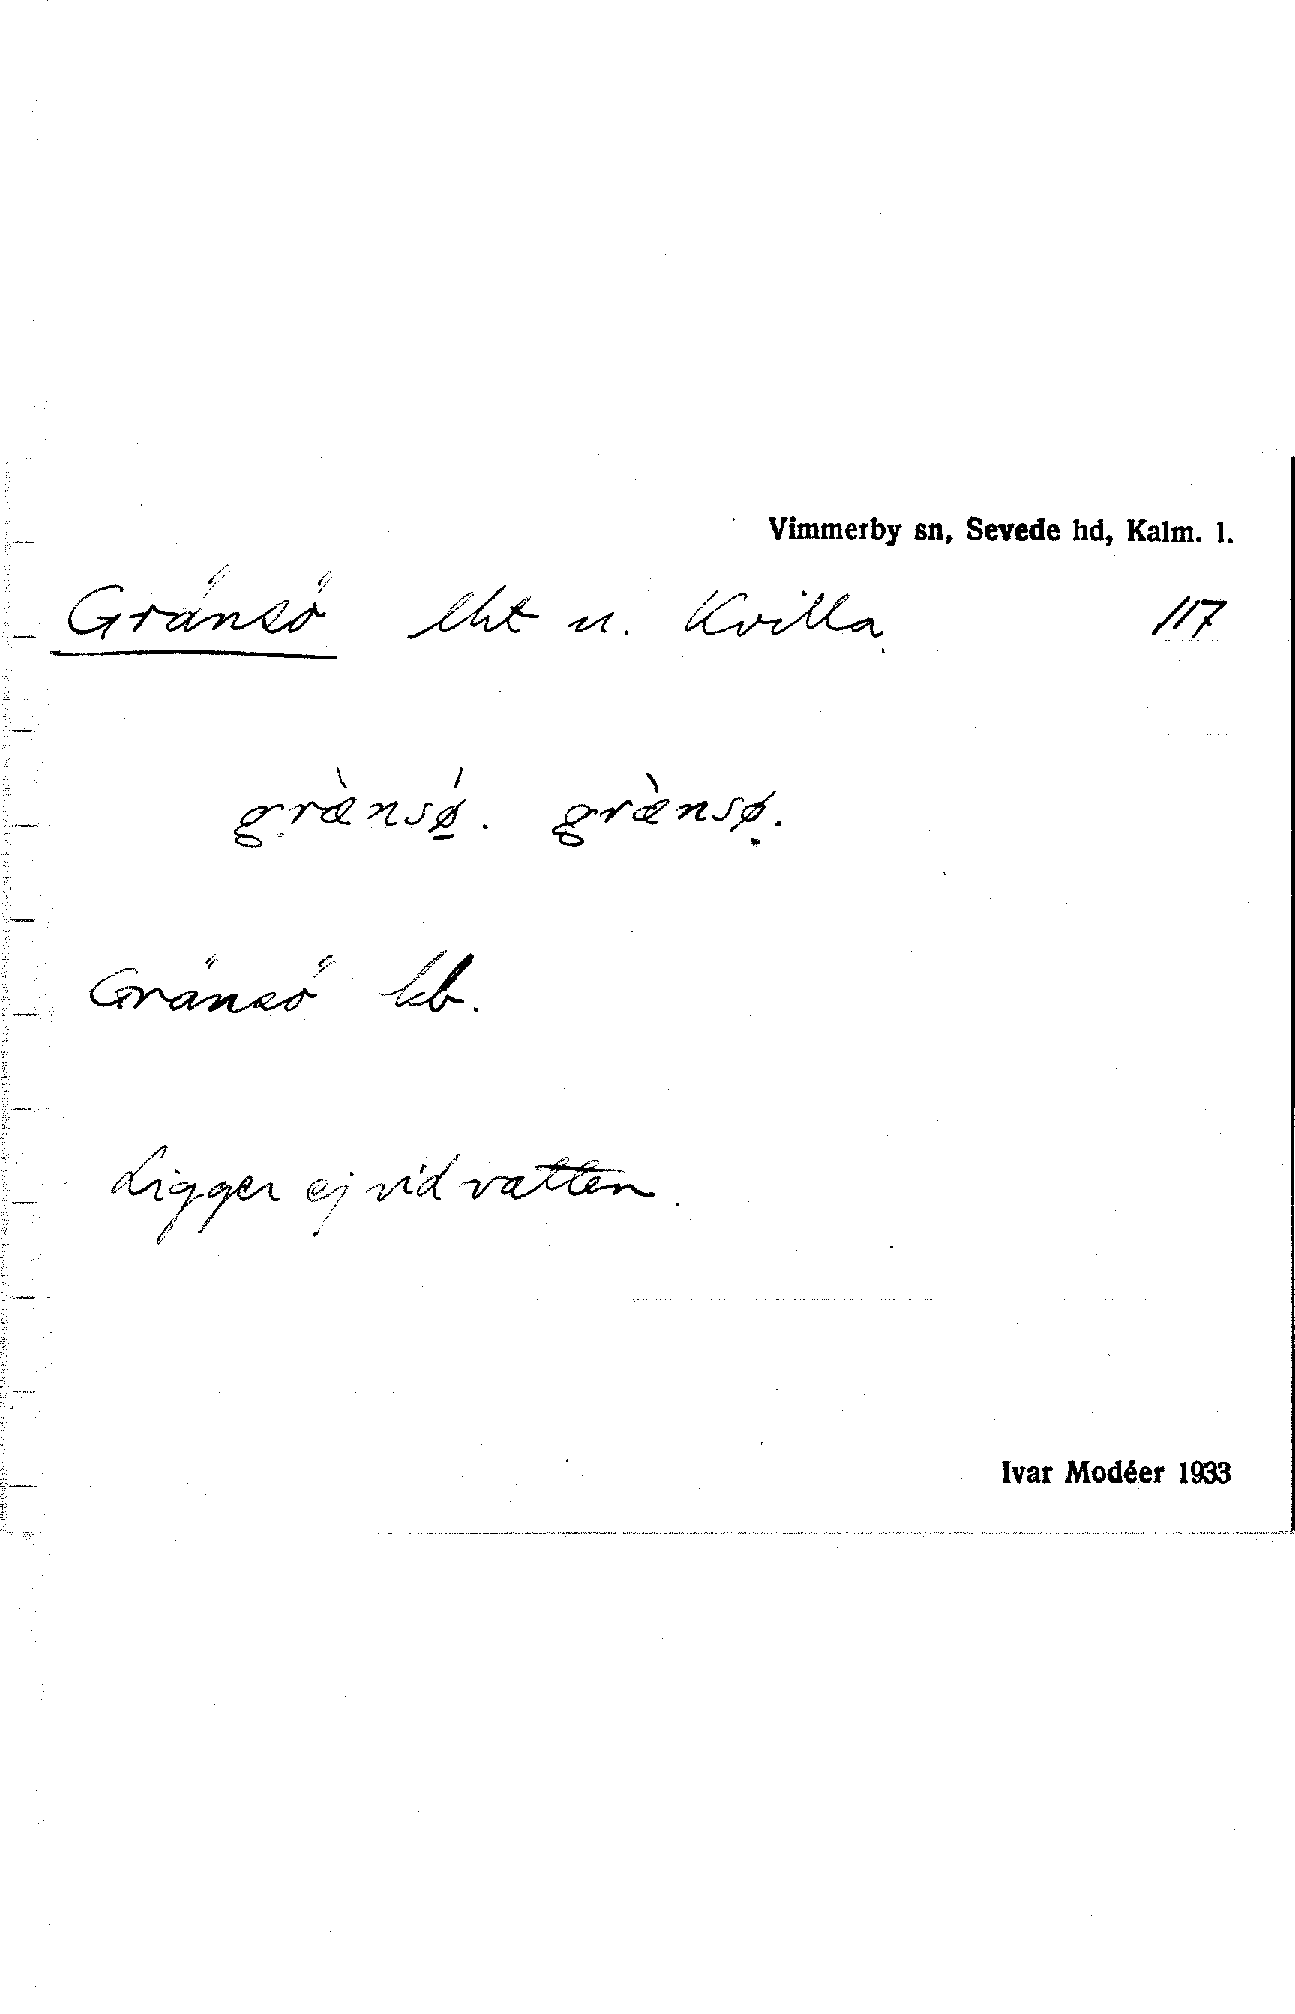 Vimmerby sn, Sevede hd, Kalm. l.
Gränsö lht u. Kvilla 117
græ̀nsǿ. græ̀nsø.
Gränsö kb.
Ligger ej vid vatten.
Ivar Modéer 1933